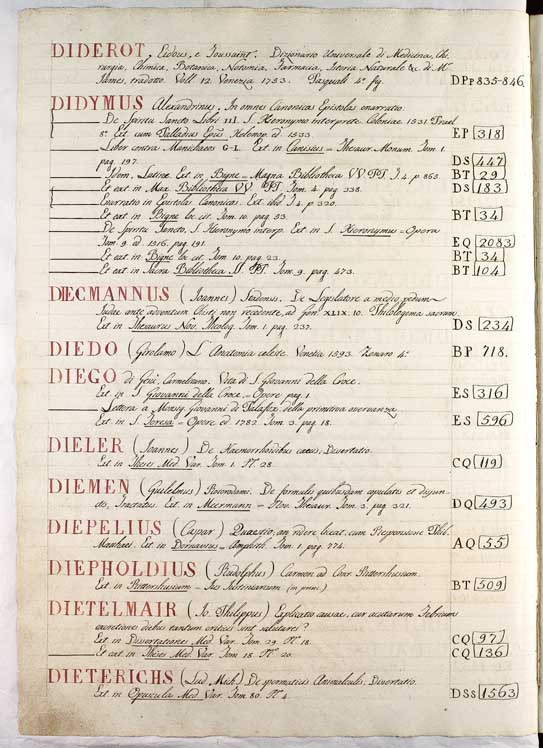 DIDEROT, Eidous, e Toussaint. Dizionario Universale di Medicina, Chi-
rurgia, Chimica, Botanica, Notomia, Farmacia, Istoria Naturale &c. di Mr
James, tradotto. Voll. 12. Venezia 1753. Pasquali 4° fig. DPp 835-846.
DIDYMUS Alexandrinus. In omnes Canonicas Epistolas enarratio.
De Spiritu Sancto Libri III. S. Hieronymo interprete. Coloniae 1531.
8° Ext. cum Palladius Helenop. d. 1533. EP 318
Liber contra Manichaeos G-L. Ext. in Canisius - Thesaur. Monum. Tom. 1.
pag. 197. DS 447
Idem, Latine. Ext. in Bigne - Magna Bibliotheca VV. PP. T. 4. p. 865. BT 29
Et ext. in Max. Bibliotheca VV. PP. Tom. 4. pag. 338. DS 183
Enarratio in Epistolas Canonicas. Ext. ibid. T. 4. p. 320.
Et ext. in Bigne loc. cit. Tom. 10. pag. 53. BT 34
De Spiritu Sancto, S. Hieronymo interp. Ext. in S. Hieronymus - Opera
Tom. 9. ed. 1516. pag. 191. EQ 2083
Et ext. in Bigne loc. cit. Tom. 10. pag. 23. BT 34
Et ext. in Sacra Bibliotheca SS. PP. Tom. 9. pag. 473. BT 104
DIECMANNUS (Joannes) Stadensis. De Legislatore a medio pedum
Judae ante adventum Christi non recedente, ad Gen. XLIX. 10. Philologema sacrum.
Ext. in Thesaurus Nov. Theolog. Tom. 1. pag. 237. DS 234
DIEDO (Girolamo) L'Anatomia celeste. Venetia 1593. Zenaro 4° BP 718.
DIEGO di Gesù, Carmelitano. Vita di S. Giovanni della Croce.
Ext. in S. Giovanni della Croce - Opere pag. 1. ES 316
Lettera a Monsig. Giovanni di Palafox, della primitiva osservanza,
Ext. in S. Teresa - Opere ed. 1782. Tom. 3. pag. 18. ES 596
DIELER (Joannes) De Haemorrhoidibus caecis, Dissertatio.
Ext. in Theses Med. Var. Tom. 1. N. 28. CQ 119
DIEMEN (Guilelmus) Roterodami. De formulis quibusdam copulatis et disjun-
ctis, Tractatus. Ext. in Meermann - Nov. Thesaur. Tom. 3. pag. 321. DQ 493
DIEPELIUS (Caspar) Quaestio, an ridere liceat, cum Responsione Phil.
Ext. in Dornavius - Amphith. Tom. 1. pag. 774. AQ 55
DIEPHOLDIUS (Rudolphus) Carmen ad Conr. Rittershusium.
Ext. in Rittershusium - Jus Justinianeum (in princ.) BT 509
DIETELMAIR (Jo. Philippus) Explicatio causae, cur acutarum Febrium
excretiones diebus tantum criticis sint salutares?
Ext. in Dissertationes Med. Var. Tom. 29. N. 18. CQ 97
Et ext. in Theses Med. Var. Tom. 18. N. 20. CQ 136
DIETERICHS (Lud. Mich.) De spermaticis Animalculis, Dissertatio.
Ext. in Opuscula Med. Var. Tom. 80. N. 4. DSs 1563